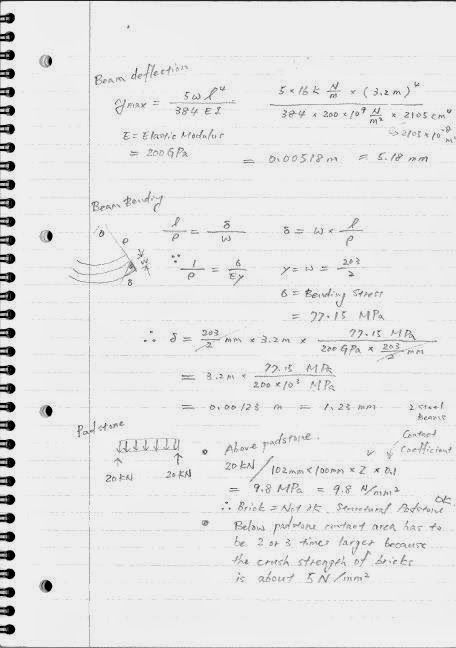 Beam deflection
ymax = 5wl⁴ / 384 EI    5 × 16 k N/m × (3.2m)⁴ / 384 × 200 × 10⁹ N/m² × 2105 cm⁴
↳ 2105 × 10⁻⁸ m⁴
E = Elastic Modulus
= 200 GPa    = 0.00518 m = 5.18 mm
Beam Bending
l/ρ = δ/w    δ = w × l/ρ
∵ 1/ρ = σ/Ey    y = w = 203/2
σ = Bending Stress
= 77.15 MPa
∴ δ = 203/2 mm × 3.2 m × 77.15 MPa / 200 GPa × 203/2 mm
= 3.2 m × 77.15 MPa / 200 × 10³ MPa
= 0.00123 m = 1.23 mm
2 steel
Beams
Padstone
Contact
Coefficient
• Above padstone.
20 kN    20 kN
20 kN / 102mm × 100mm × 2 × 0.1
= 9.8 MPa = 9.8 N/mm²
∴ Brick = Not ok. Structural Padstone OK.
• Below padstone contact area has to
be 2 or 3 times larger because
the crush strength of bricks
is about 5 N/mm²